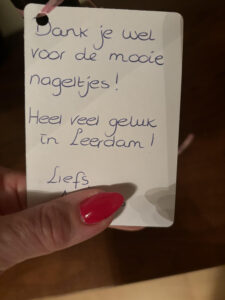 Dank je wel
voor de mooie
nageltjes!
Heel veel geluk
in Leerdam!
Liefs